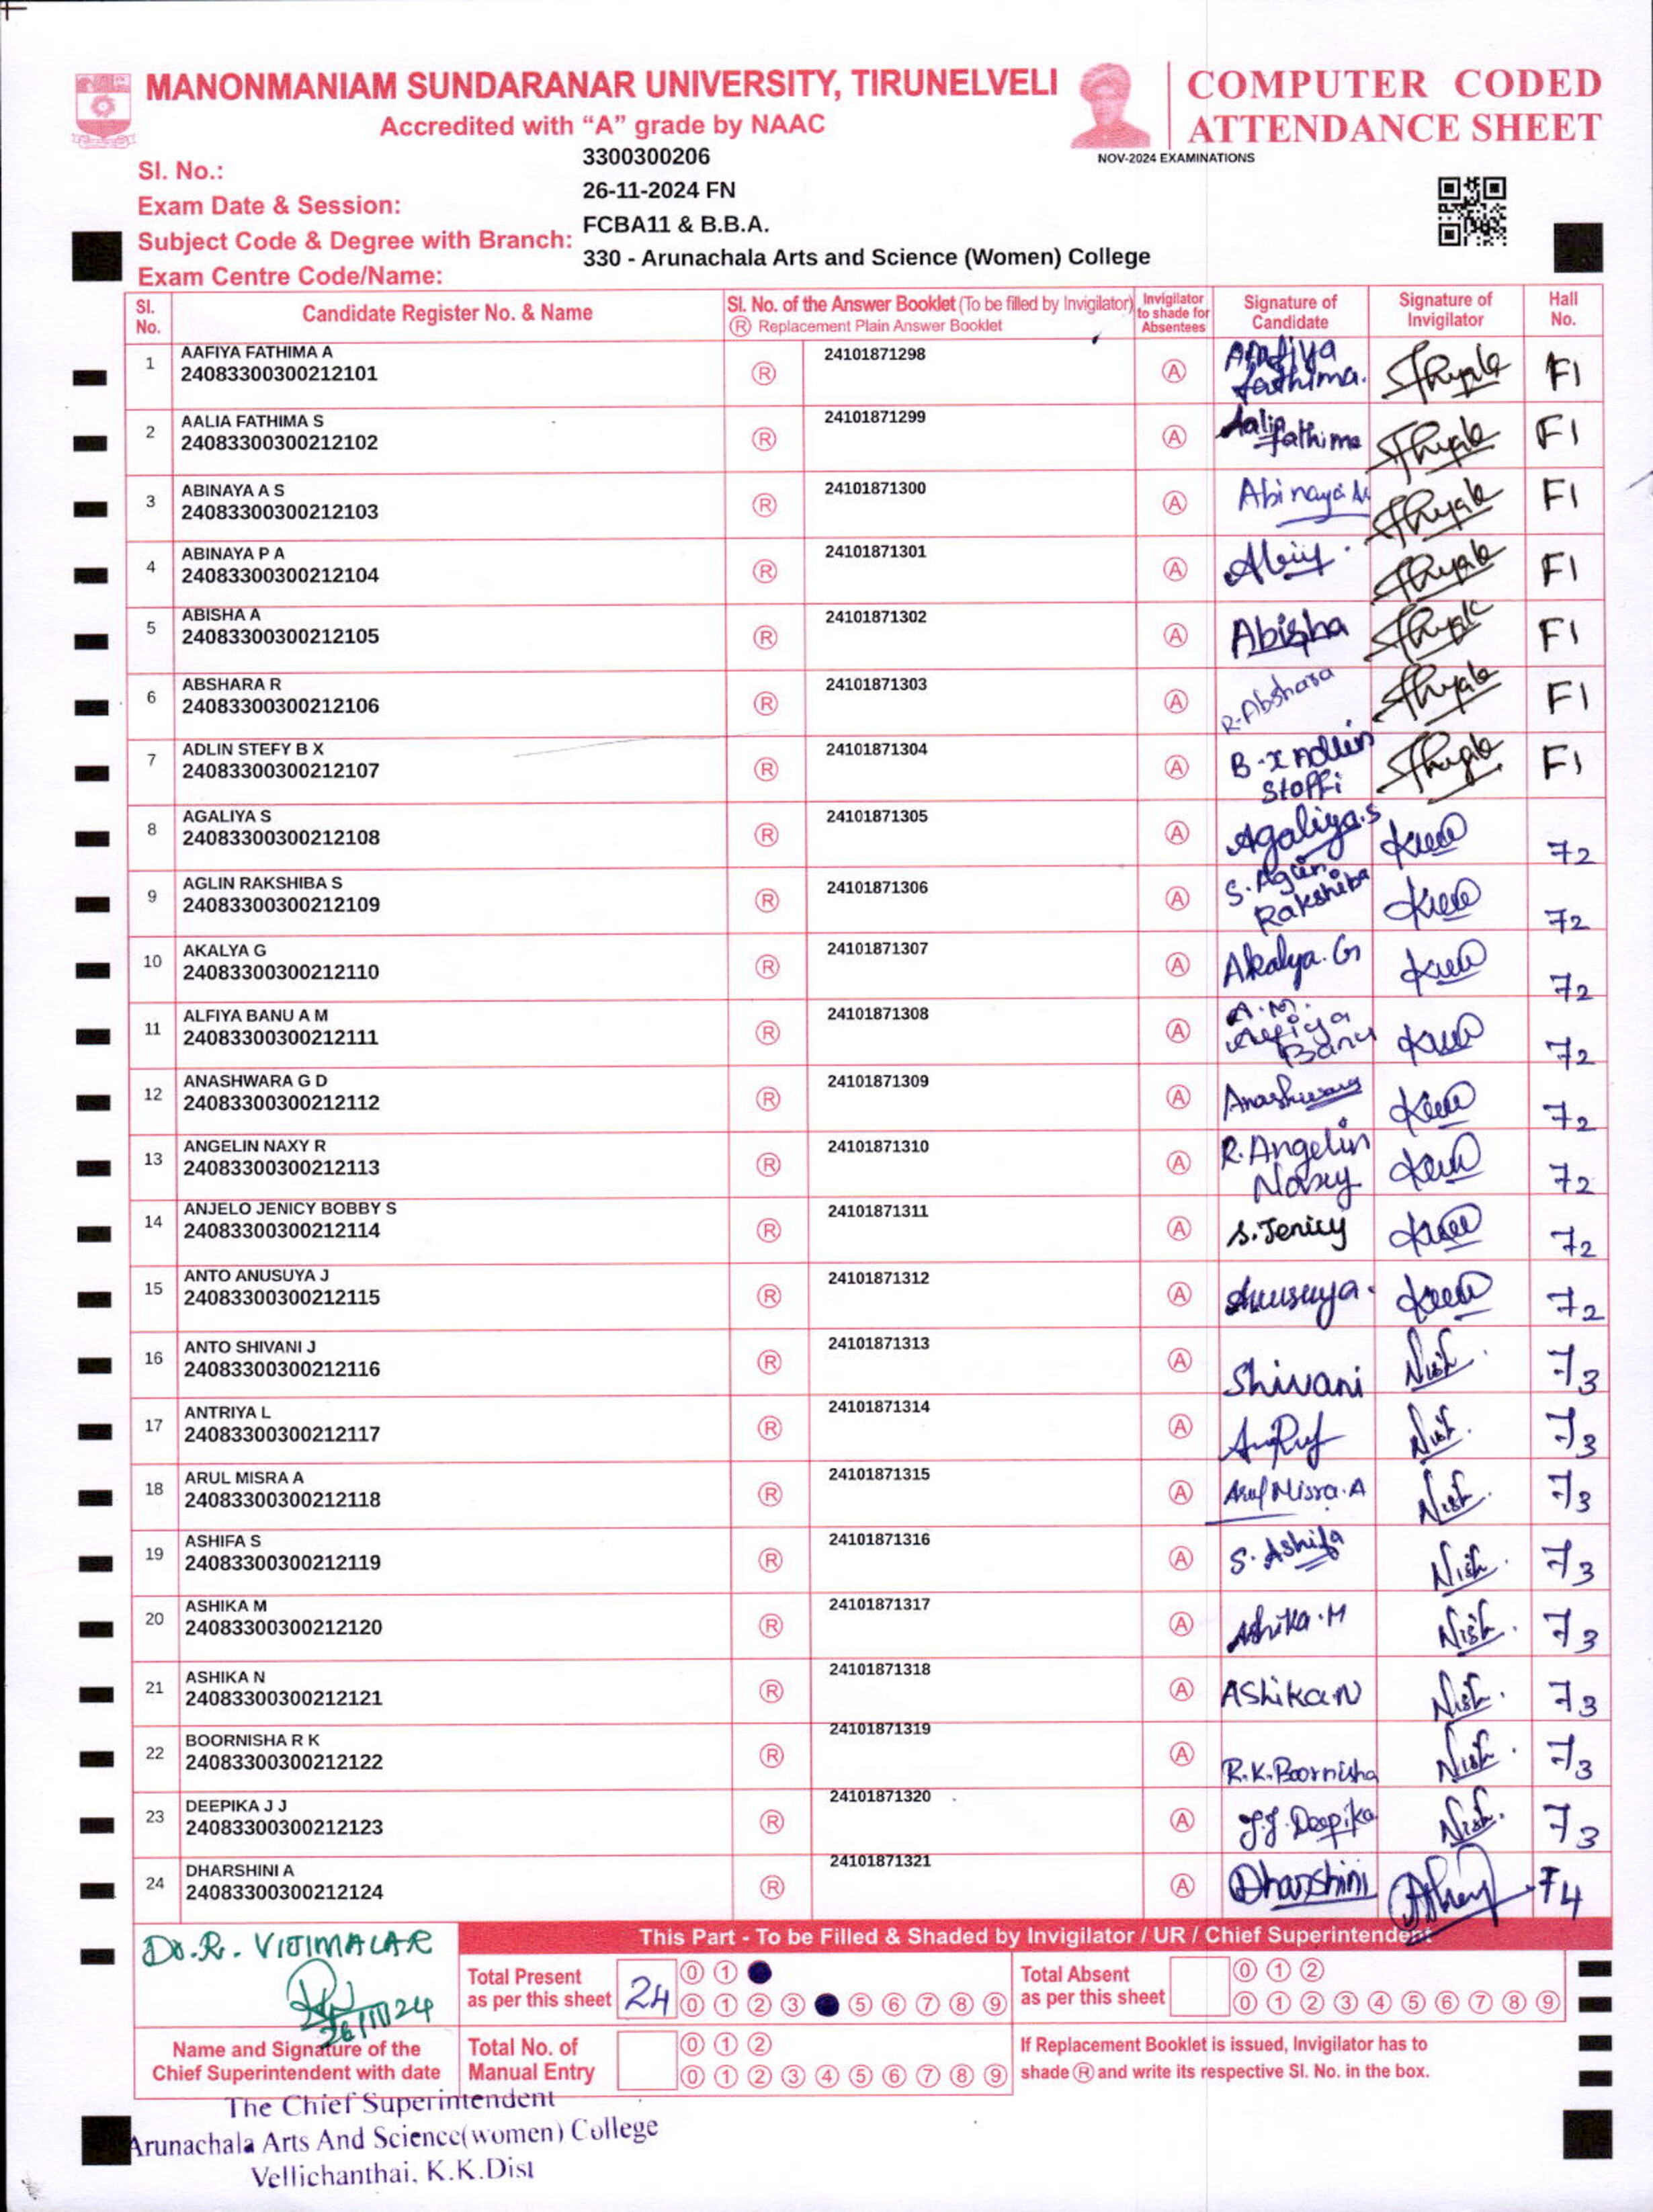 MANONMANIAM SUNDARANAR UNIVERSITY, TIRUNELVELI
Accredited with “A” grade by NAAC
COMPUTER CODED
ATTENDANCE SHEET
NOV-2024 EXAMINATIONS
Sl. No.: 3300300206
Exam Date & Session: 26-11-2024 FN
Subject Code & Degree with Branch: FCBA11 & B.B.A.
Exam Centre Code/Name: 330 - Arunachala Arts and Science (Women) College
Sl. No. Candidate Register No. & Name Sl. No. of the Answer Booklet (To be filled by Invigilator) Ⓡ Replacement Plain Answer Booklet Invigilator to shade for Absentees Signature of Candidate Signature of Invigilator Hall No.
1 AAFIYA FATHIMA A 24083300300212101 Ⓡ 24101871298 Ⓐ fathima. F1
2 AALIA FATHIMA S 24083300300212102 Ⓡ 24101871299 Ⓐ Aalia fathima F1
3 ABINAYA A S 24083300300212103 Ⓡ 24101871300 Ⓐ Abinaya F1
4 ABINAYA P A 24083300300212104 Ⓡ 24101871301 Ⓐ F1
5 ABISHA A 24083300300212105 Ⓡ 24101871302 Ⓐ Abisha F1
6 ABSHARA R 24083300300212106 Ⓡ 24101871303 Ⓐ R. Abshara F1
7 ADLIN STEFY B X 24083300300212107 Ⓡ 24101871304 Ⓐ F1
8 AGALIYA S 24083300300212108 Ⓡ 24101871305 Ⓐ Agaliya.S F2
9 AGLIN RAKSHIBA S 24083300300212109 Ⓡ 24101871306 Ⓐ S. Aglin Rakshiba F2
10 AKALYA G 24083300300212110 Ⓡ 24101871307 Ⓐ Akalya. G F2
11 ALFIYA BANU A M 24083300300212111 Ⓡ 24101871308 Ⓐ A.M. Alfiya Banu F2
12 ANASHWARA G D 24083300300212112 Ⓡ 24101871309 Ⓐ F2
13 ANGELIN NAXY R 24083300300212113 Ⓡ 24101871310 Ⓐ R. Angelin Naxy F2
14 ANJELO JENICY BOBBY S 24083300300212114 Ⓡ 24101871311 Ⓐ S. Jenicy F2
15 ANTO ANUSUYA J 24083300300212115 Ⓡ 24101871312 Ⓐ Anusuya. F2
16 ANTO SHIVANI J 24083300300212116 Ⓡ 24101871313 Ⓐ Shivani F3
17 ANTRIYA L 24083300300212117 Ⓡ 24101871314 Ⓐ F3
18 ARUL MISRA A 24083300300212118 Ⓡ 24101871315 Ⓐ Arul Misra. A F3
19 ASHIFA S 24083300300212119 Ⓡ 24101871316 Ⓐ S. Ashifa F3
20 ASHIKA M 24083300300212120 Ⓡ 24101871317 Ⓐ Ashika. M F3
21 ASHIKA N 24083300300212121 Ⓡ 24101871318 Ⓐ AShika N F3
22 BOORNISHA R K 24083300300212122 Ⓡ 24101871319 Ⓐ R.K. Boornisha F3
23 DEEPIKA J J 24083300300212123 Ⓡ 24101871320 Ⓐ J.J. Deepika F3
24 DHARSHINI A 24083300300212124 Ⓡ 24101871321 Ⓐ Dharshini F4
This Part - To be Filled & Shaded by Invigilator / UR / Chief Superintendent
Dr. R. VIJIMALAR
26/11/24
Name and Signature of the Chief Superintendent with date
Total Present as per this sheet 24
⓪ ①
⓪ ① ② ③ ⑤ ⑥ ⑦ ⑧ ⑨
Total Absent as per this sheet
⓪ ① ②
⓪ ① ② ③ ④ ⑤ ⑥ ⑦ ⑧ ⑨
Total No. of Manual Entry
⓪ ① ②
⓪ ① ② ③ ④ ⑤ ⑥ ⑦ ⑧ ⑨
If Replacement Booklet is issued, Invigilator has to
shade Ⓡ and write its respective Sl. No. in the box.
The Chief Superintendent
Arunachala Arts And Science(women) College
Vellichanthai, K.K.Dist